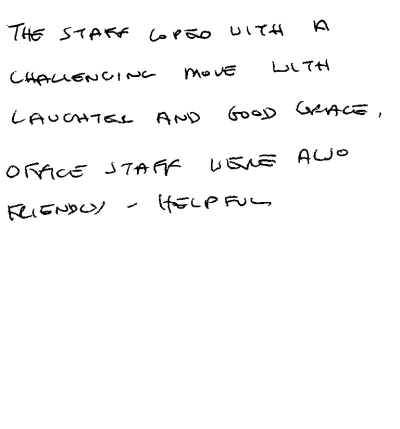 THE STAFF COPED WITH A
CHALLENGING MOVE WITH
LAUGHTER AND GOOD GRACE,
OFFICE STAFF WERE ALSO
FRIENDLY - HELPFUL